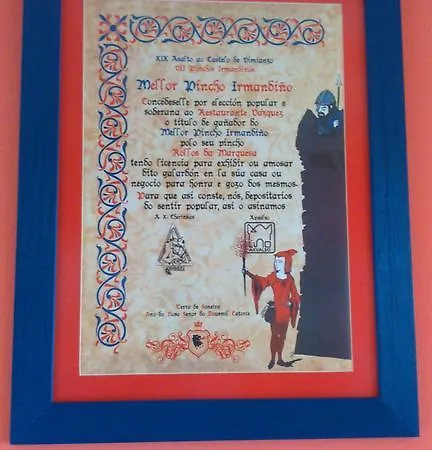 XIX Asalto ao Castelo de Vimianzo
VII Pinchos Irmandiños
Mellor Pincho Irmandiño
Concédeselle por elección popular e
soberana ao Restaurante Vázquez
o título de gañador do
Mellor Pincho Irmandiño
polo seu pincho
Rollos da Marquesa
tendo licencia para exhibir ou amosar
dito galardón en la súa casa ou
negocio para honra e gozo dos mesmos.
Para que así conste, nós, depositarios
do sentir popular, así o asinamos
A. X. Asalto
ASVALEO
Terra de Soneira
Ano do Noso Señor do Dousmil Catorce